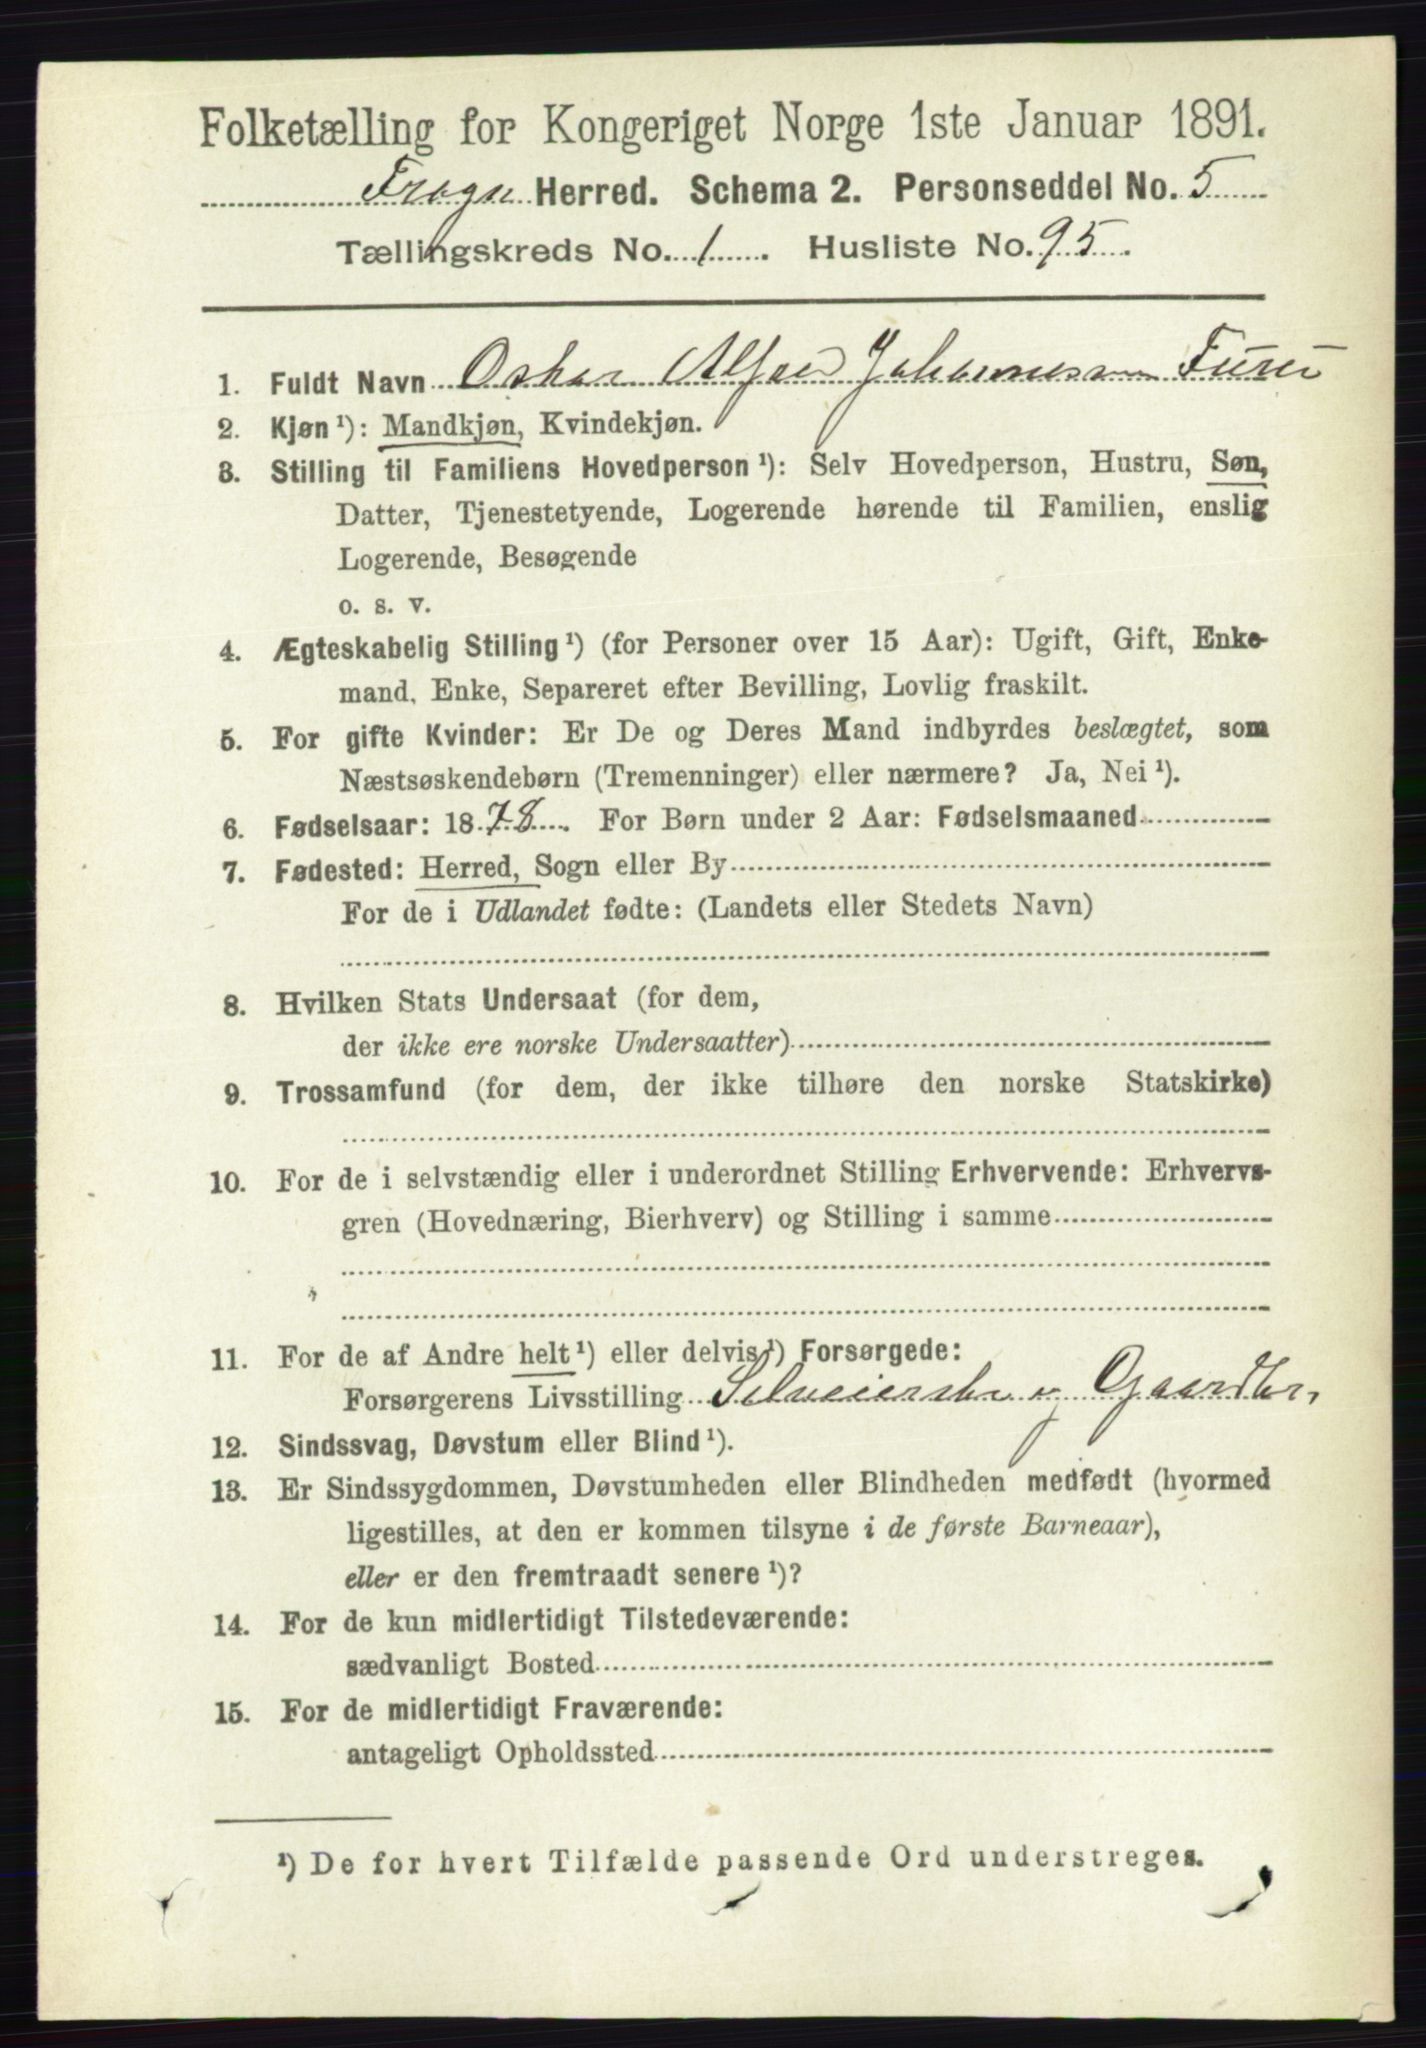 Folketælling for Kongeriget Norge 1ste Januar 1891.
Frogn Herred. Schema 2. Personseddel No. 5
Tællingskreds No. 1. Husliste No. 95.
1. Fuldt Navn Oskar Alfred Johannessen
2. Kjøn ¹): Mandkjøn, Kvindekjøn.
3. Stilling til Familiens Hovedperson ¹): Selv Hovedperson, Hustru, Søn,
Datter, Tjenestetyende, Logerende hørende til Familien, enslig
Logerende, Besøgende
o. s. v.
4. Ægteskabelig Stilling ¹) (for Personer over 15 Aar): Ugift, Gift, Enke-
mand, Enke, Separeret efter Bevilling, Lovlig fraskilt.
5. For gifte Kvinder: Er De og Deres Mand indbyrdes beslægtet, som
Næstsøskendebørn (Tremenninger) eller nærmere? Ja, Nei ¹).
6. Fødselsaar: 1878. For Børn under 2 Aar: Fødselsmaaned
7. Fødested: Herred, Sogn eller By
For de i Udlandet fødte: (Landets eller Stedets Navn)
8. Hvilken Stats Undersaat (for dem,
der ikke ere norske Undersaatter)
9. Trossamfund (for dem, der ikke tilhøre den norske Statskirke)
10. For de i selvstændig eller i underordnet Stilling Erhvervende: Erhvervs-
gren (Hovednæring, Bierhverv) og Stilling i samme
11. For de af Andre helt ¹) eller delvis ¹) Forsørgede:
Forsørgerens Livsstilling Selveier Gaardbr,
12. Sindssvag, Døvstum eller Blind ¹).
13. Er Sindssygdommen, Døvstumheden eller Blindheden medfødt (hvormed
ligestilles, at den er kommen tilsyne i de første Barneaar),
eller er den fremtraadt senere ¹)?
14. For de kun midlertidigt Tilstedeværende:
sædvanligt Bosted
15. For de midlertidigt Fraværende:
antageligt Opholdssted
¹) De for hvert Tilfælde passende Ord understreges.